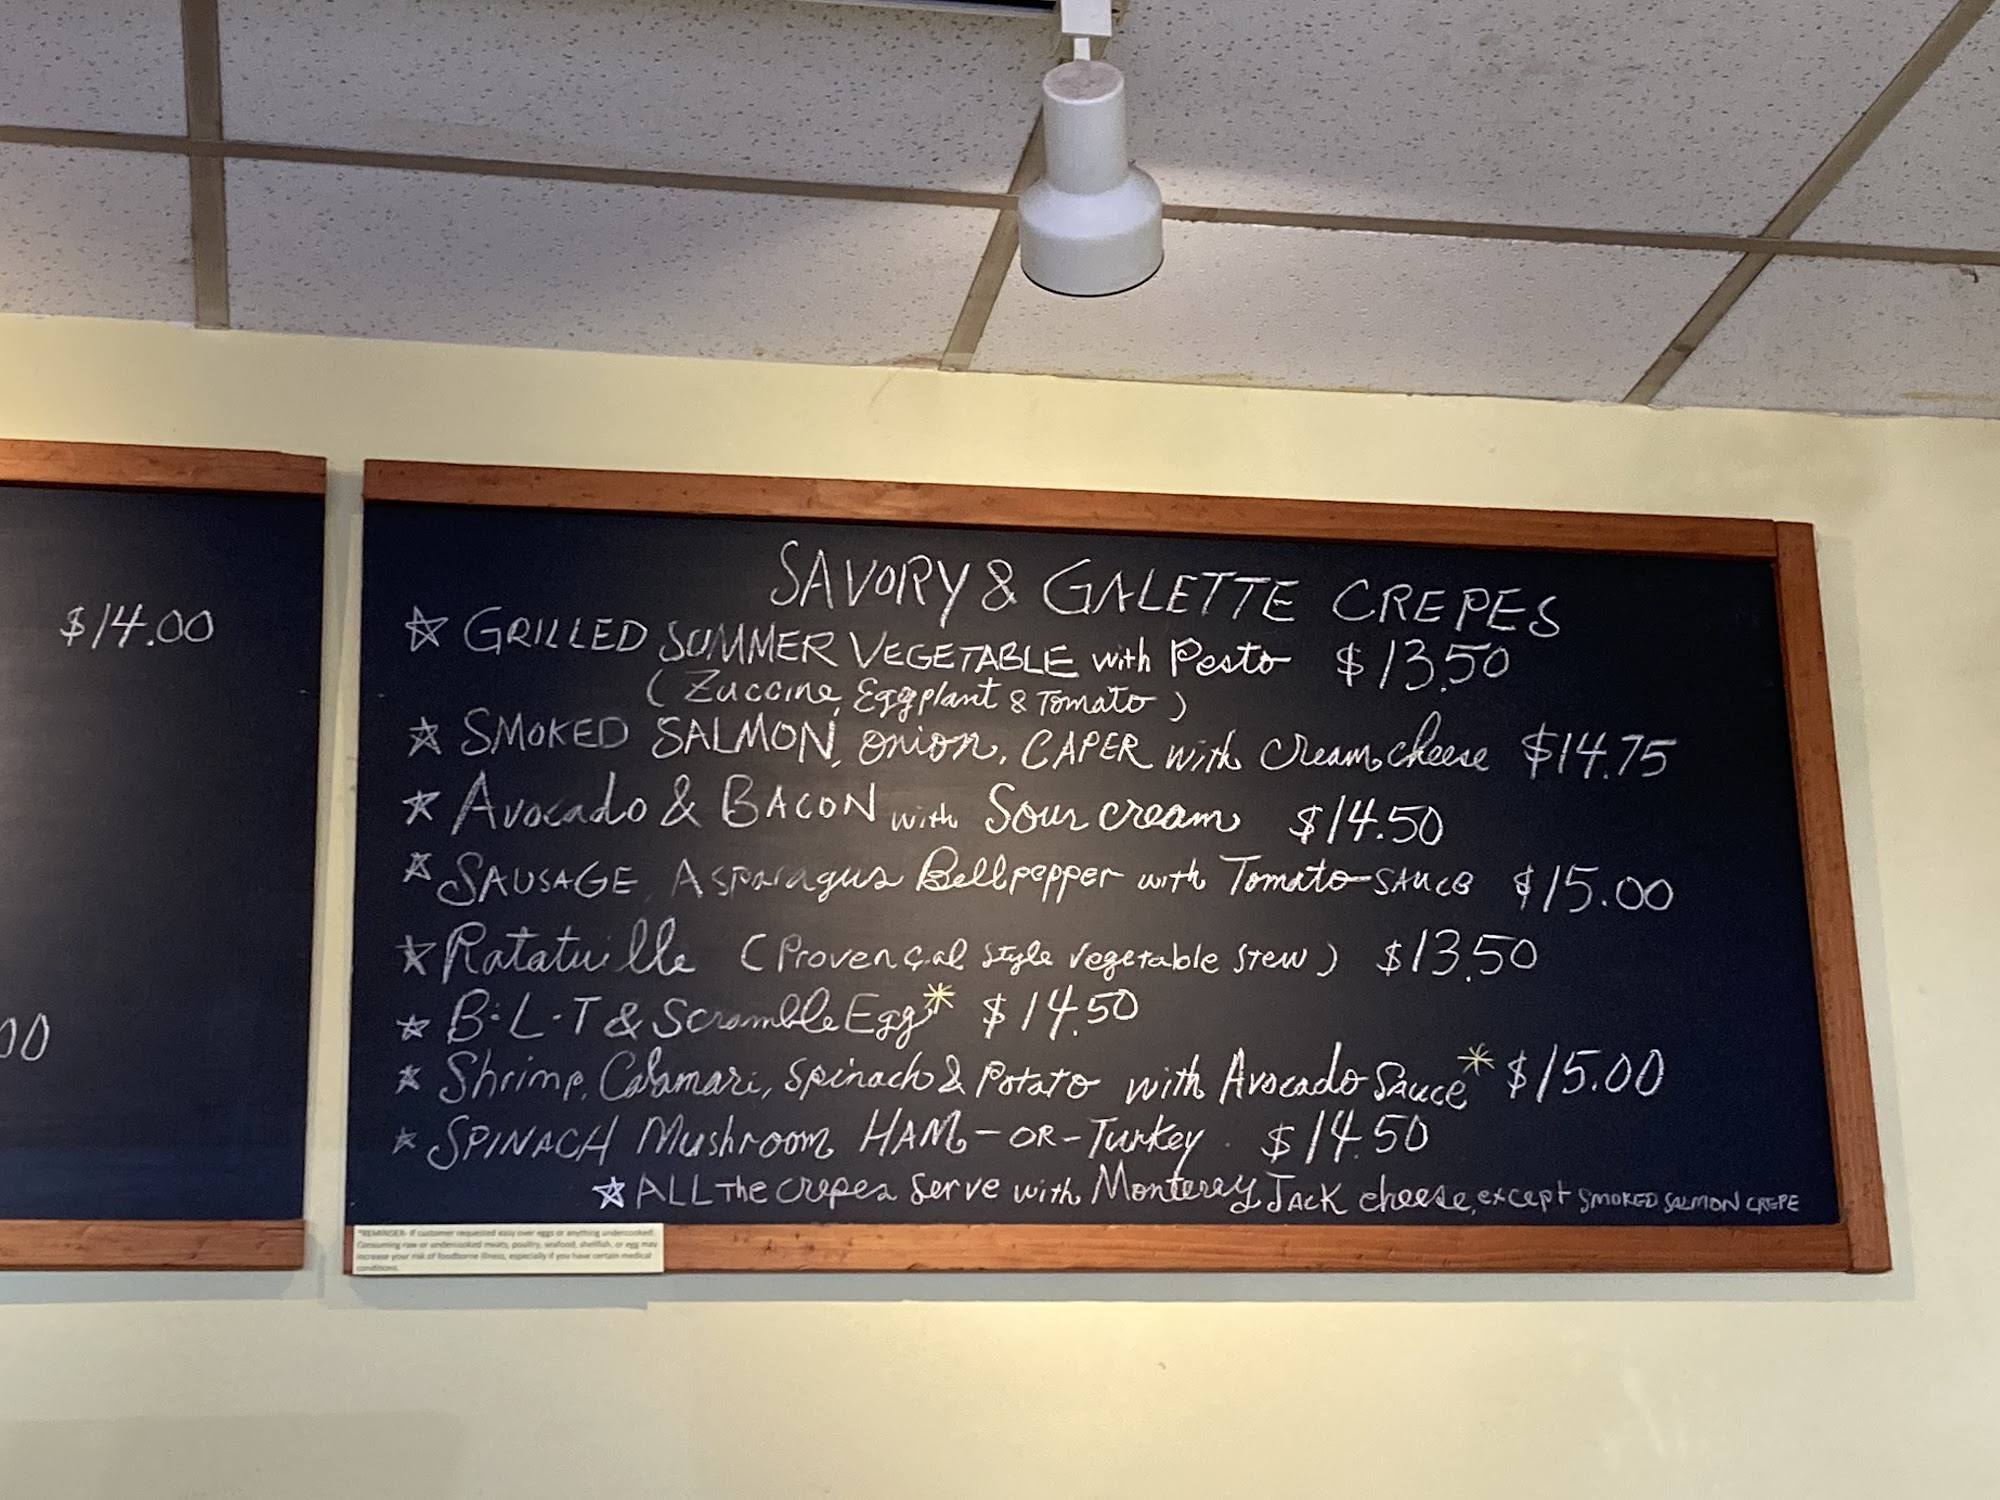 $14.00
00
SAVORY & GALETTE CREPES
☆ GRILLED SUMMER VEGETABLE with Pesto $13.50
(Zuccine, Eggplant & Tomato)
☆ SMOKED SALMON, onion, CAPER with Cream cheese $14.75
☆ Avocado & BACON with Sour cream $14.50
☆ SAUSAGE, Asparagus Bellpepper with Tomato SAUCE $15.00
☆ Ratatuille (Provençal style vegetable stew) $13.50
☆ B.L.T & Scramble Egg* $14.50
☆ Shrimp, Calamari, Spinach & Potato with Avocado Sauce* $15.00
☆ SPINACH Mushroom HAM-OR-Turkey. $14.50
☆ ALL The crepes Serve with Monterey JACK cheese, except SMOKED SALMON CREPE
*REMINDER- If customer requested easy over eggs or anything undercooked:
Consuming raw or undercooked meats, poultry, seafood, shellfish, or egg may
increase your risk of foodborne illness, especially if you have certain medical
conditions.